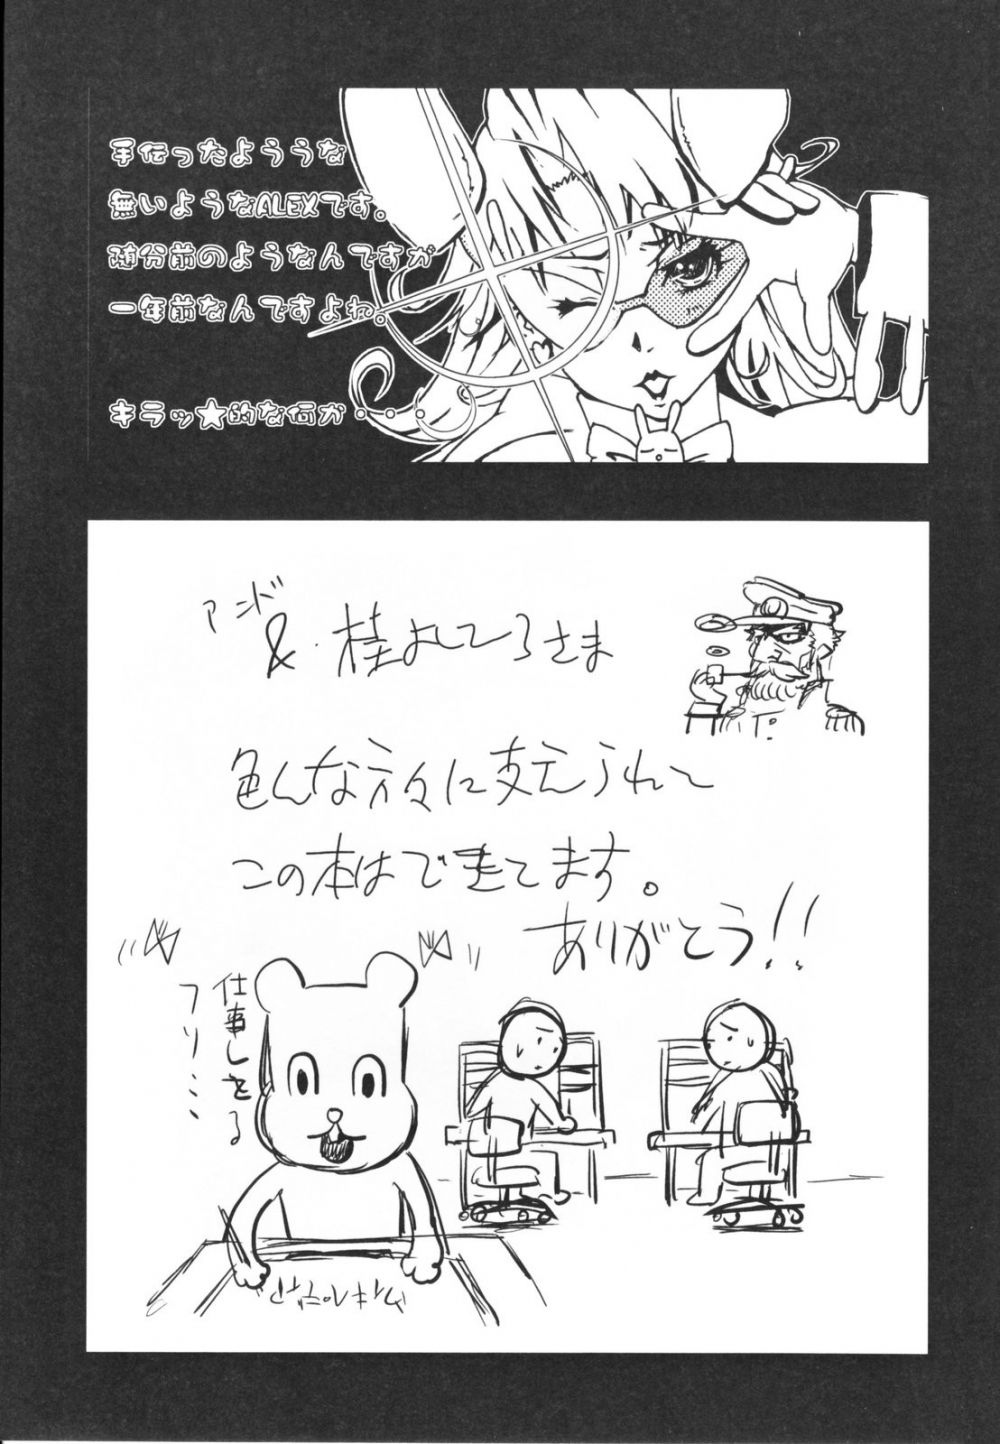 手伝ったよううな
無いようなALEXです。
随分前のようなんですが
一年前なんですよね。
キラッ★的な何か・・・
アンド
&・桂よしひろさま
色んな方々に支えられて
この本はできてます。
ありがとう!!
仕事しをる
フリ…
ウィキペディア